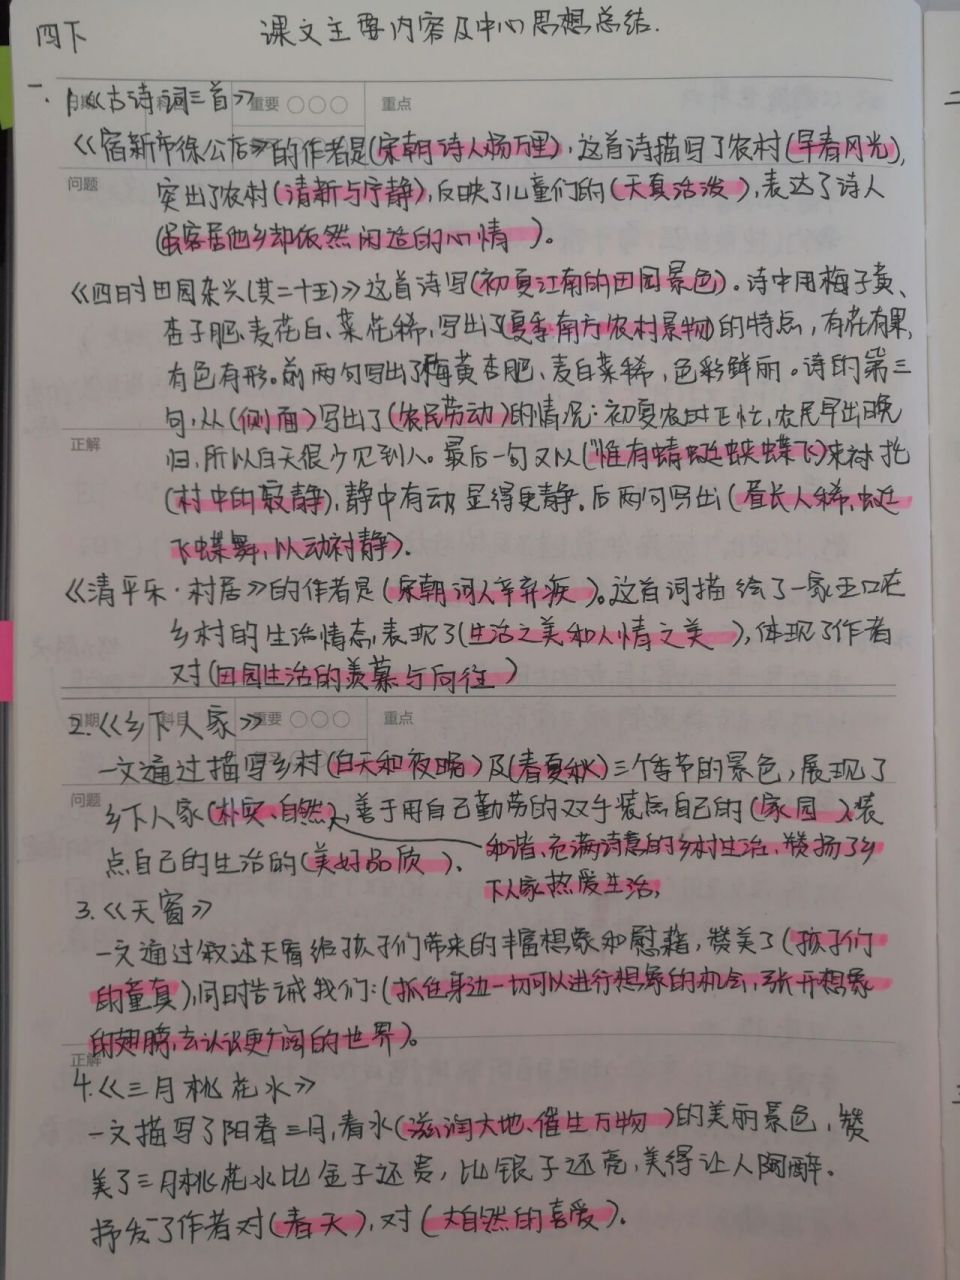 四下
课文主要内容及中心思想总结.
一、1.《古诗词三首》
日期 科目 重要 ○○○ 重点
《宿新市徐公店》的作者是(宋朝诗人杨万里),这首诗描写了农村(早春风光),
问题
突出了农村(清新与宁静),反映了儿童们的(天真活泼),表达了诗人
(虽客居他乡却依然闲适的心情)。
《四时田园杂兴(其二十五)》这首诗写(初夏江南的田园景色)。诗中用梅子黄、
杏子肥、麦花白、菜花稀,写出了(夏季南方农村景物)的特点,有花有果,
有色有形。前两句写出了梅黄杏肥、麦白菜稀,色彩鲜丽。诗的第三
句,从(侧面)写出了(农民劳动)的情况:初夏农时正忙,农民早出晚
正解
归,所以白天很少见到人。最后一句又以("惟有蜻蜓蛱蝶飞)来衬托
(村中的寂静),静中有动,显得更静。后两句写出(昼长人稀,蜓
飞蝶舞,以动衬静)。
《清平乐·村居》的作者是(宋朝词人辛弃疾)。这首词描绘了一家五口在
乡村的生活情态,表现了(生活之美和人情之美),体现了作者
对(田园生活的羡慕与向往)
2.《乡下人家》
日期 科目 重要 ○○○ 重点
一文通过描写乡村(白天和夜晚)及(春夏秋)三个季节的景色,展现了
问题
乡下人家(朴实、自然),善于用自己勤劳的双手装点自己的(家园),装
点自己的生活的(美好品质).
和谐、充满诗意的乡村生活,赞扬了乡
下人家热爱生活,
3.《天窗》
一文通过叙述天窗给孩子们带来的丰富想象和慰藉,赞美了(孩子们
的童真),同时告诫我们:(抓住身边一切可以进行想象的机会,张开想象
的翅膀,去认识更广阔的世界)。
正解
4.《三月桃花水》
一文描写了阳春三月,春水(滋润大地、催生万物)的美丽景色,赞
美了三月桃花水比金子还贵,比银子还亮,美得让人陶醉。
抒发了作者对(春天),对(大自然的喜爱)。